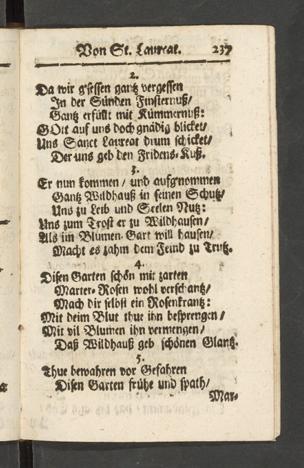 Von St. Laureat. 237
2.
Da wir g'sessen gantz vergessen
In der Sünden Finsternuß/
Gantz erfüllt mit Kümmernuß:
GOtt auf uns doch gnädig blicket/
Uns Sanct Laureat drum schicket/
Der uns geb den Fridens-Kuß.
3.
Er nun kommen/ und aufgnommen
Gantz Wildhauß in seinen Schutz/
Uns zu Leib und Seelen Nutz:
Uns zum Trost er zu Wildhausen/
Als im Blumen-Gart will hausen/
Macht es zahm dem Feind zu Trutz.
4.
Disen Garten schön mit zarten
Marter-Rosen wohl verschantz/
Mach dir selbst ein Rosenkrantz:
Mit deim Blut thue ihn besprengen/
Mit vil Blumen ihn vermengen/
Daß Wildhauß geb schönen Glantz.
5.
Thue bewahren vor Gefahren
Disen Garten frühe und spath/
Mar-